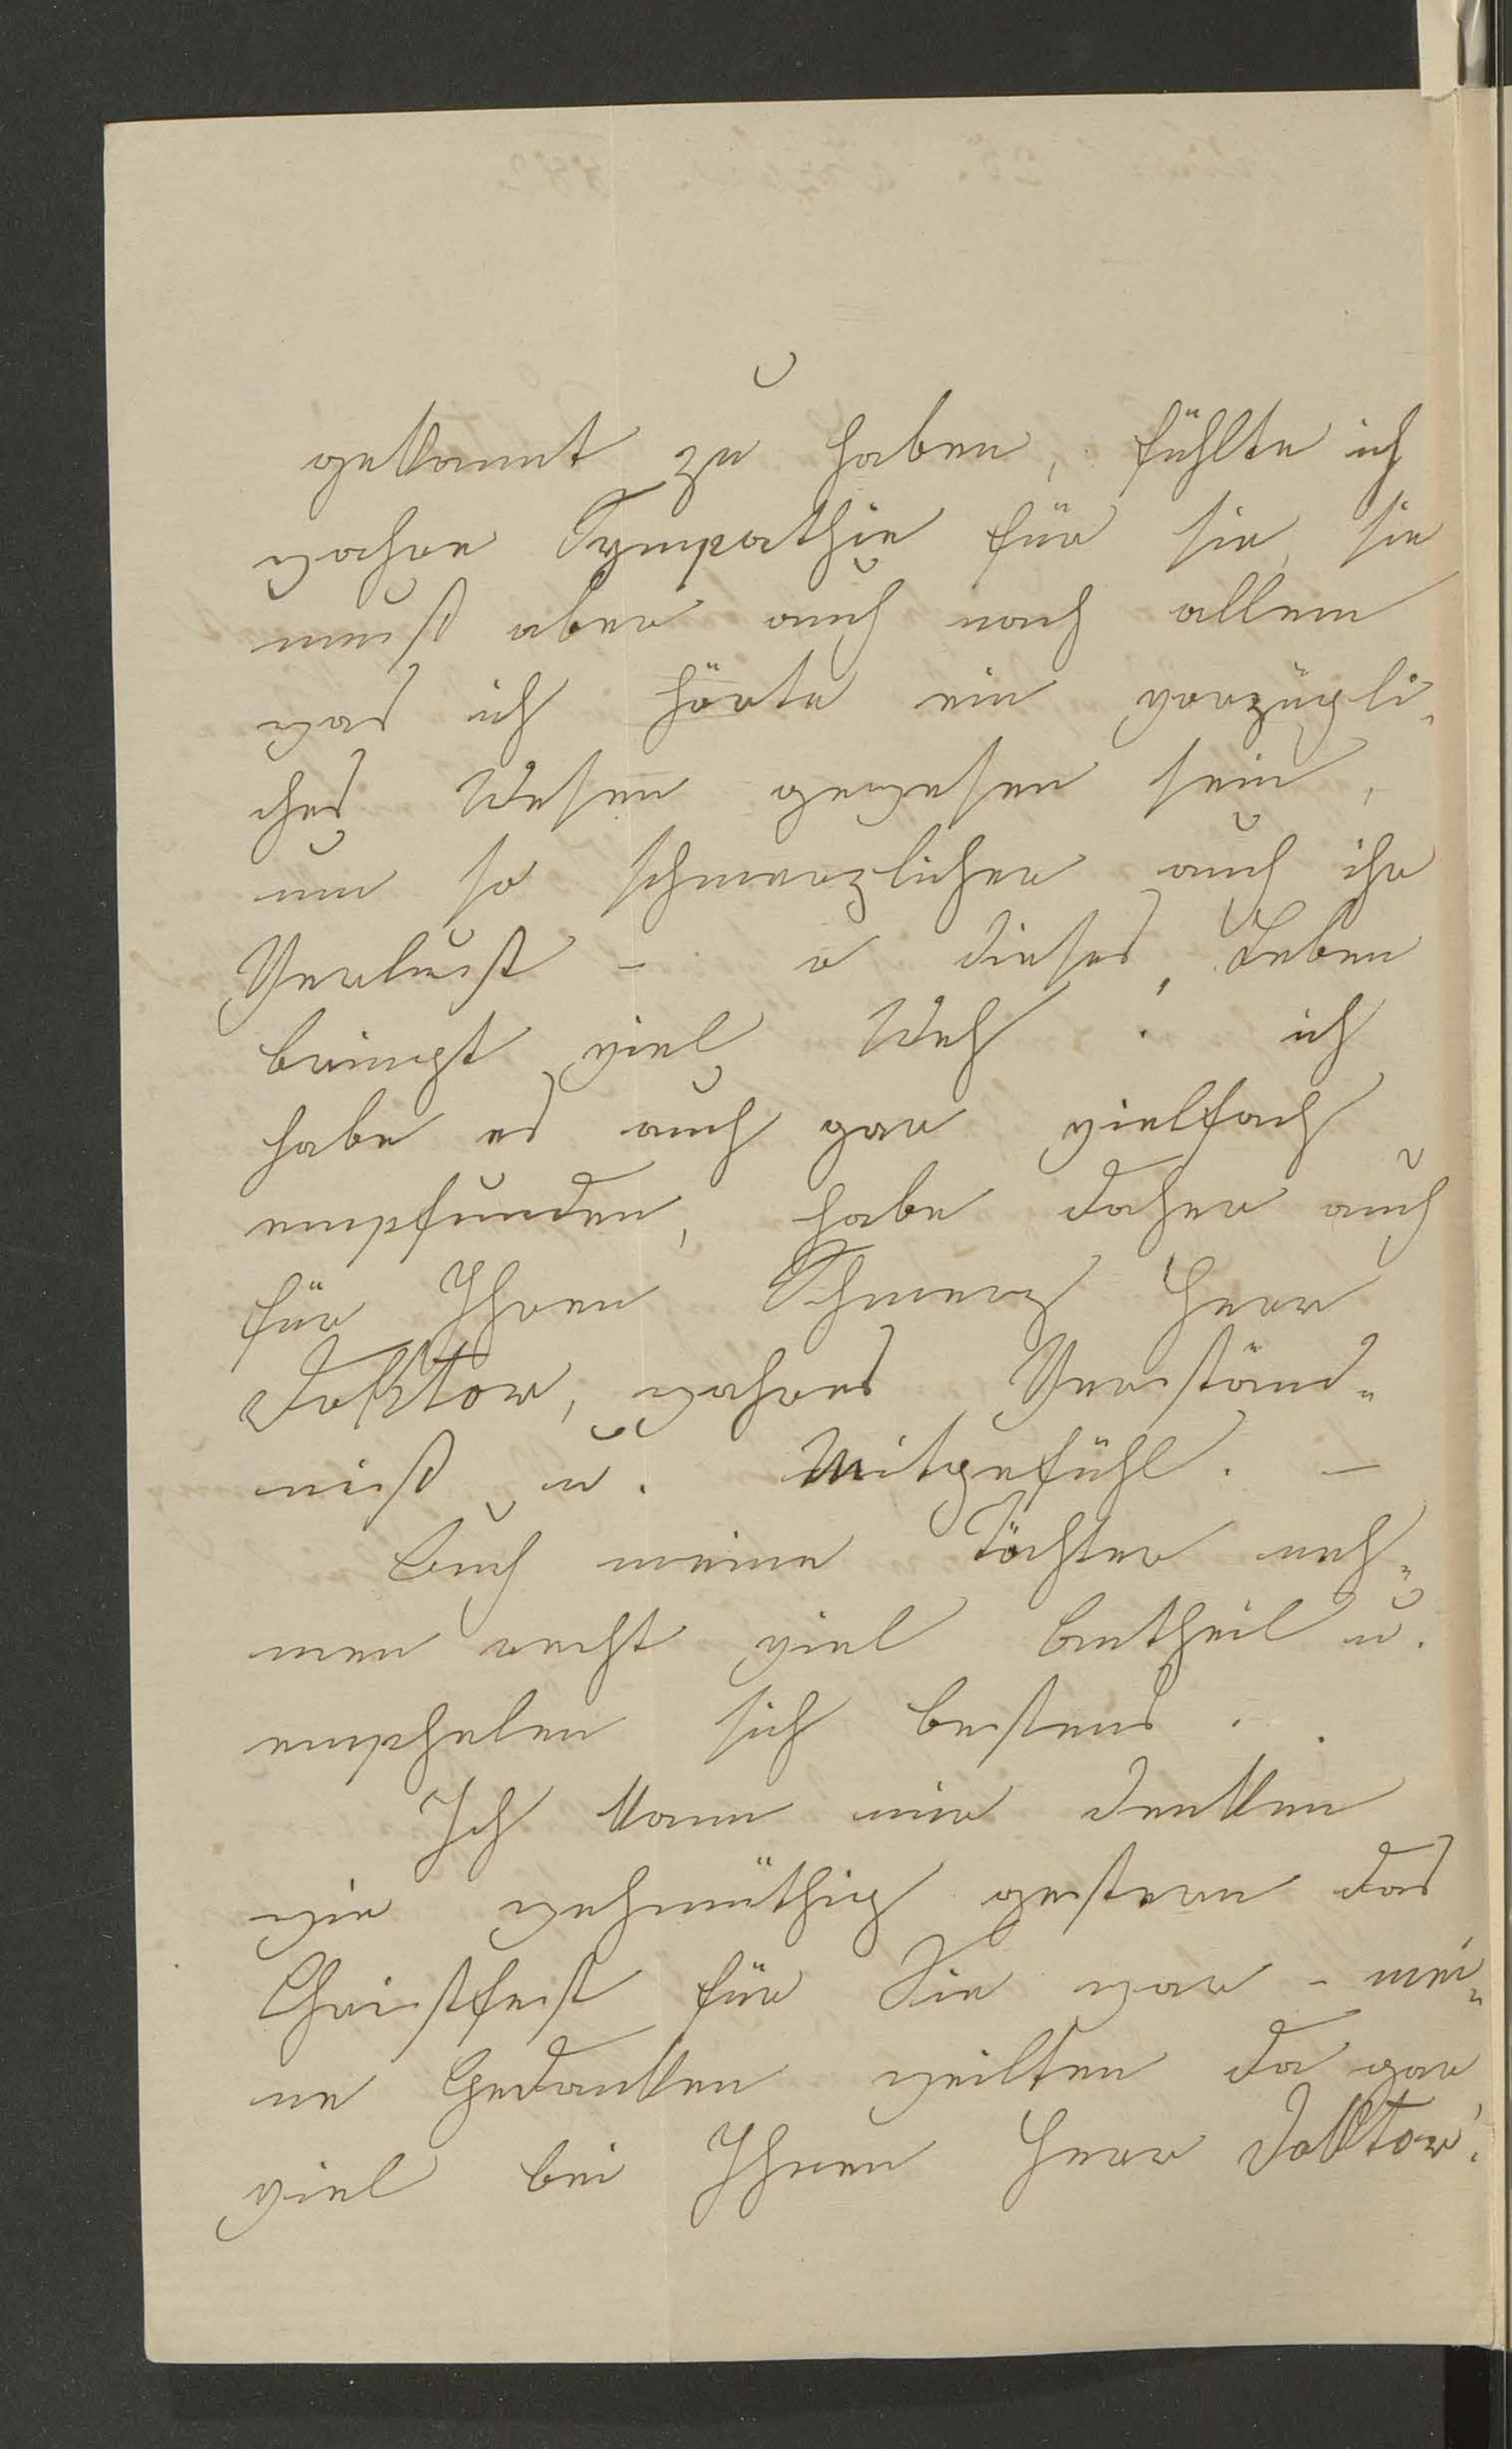 gekannt zu haben, fühlte ich
wahre Sympathie für sie, sie
muß aber auch nach allem
was ich hörte ein vorzügli-
ches Wesen gewesen sein,
um so schmerzlicher auch ihr
Verlust - o dieses Leben
bringt viel Weh. ich
habe es auch gar vielfach
empfunden, habe daher auch
für Ihren Schmerz Herr
Doktor, wahres Verständ-
niß u. Mitgefühl. -
Auch meine Töchter neh-
men recht viel Antheil u.
emphelen sich bestens.
Ich kann mir denken
wie wehmüthig gestern das
Christfest für Sie war - mei-
ne Gedanken weilten da gar
viel bei Ihnen Herr Doktor!